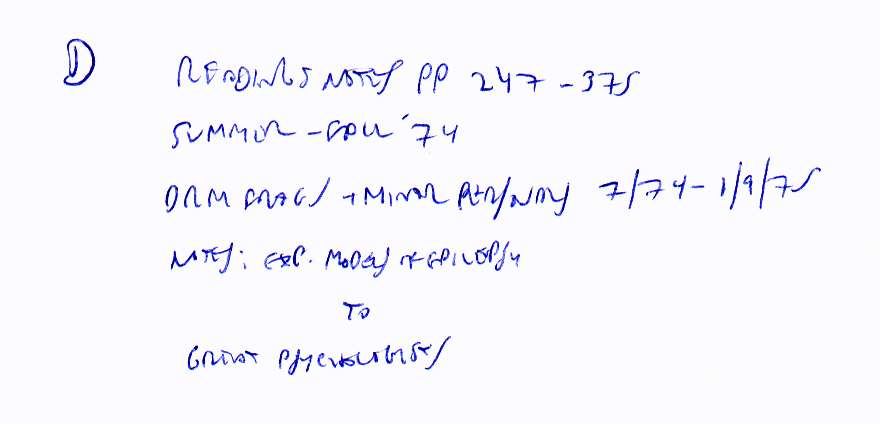 D READINGS NOTES PP 247-375
SUMMER - FALL '74
DRM FRAGS + MINOR 7/74 - 1/9/75
NOTES: EXP. MODELS OF EPILEPSY
TO
GREAT PSYCHOLOGISTS